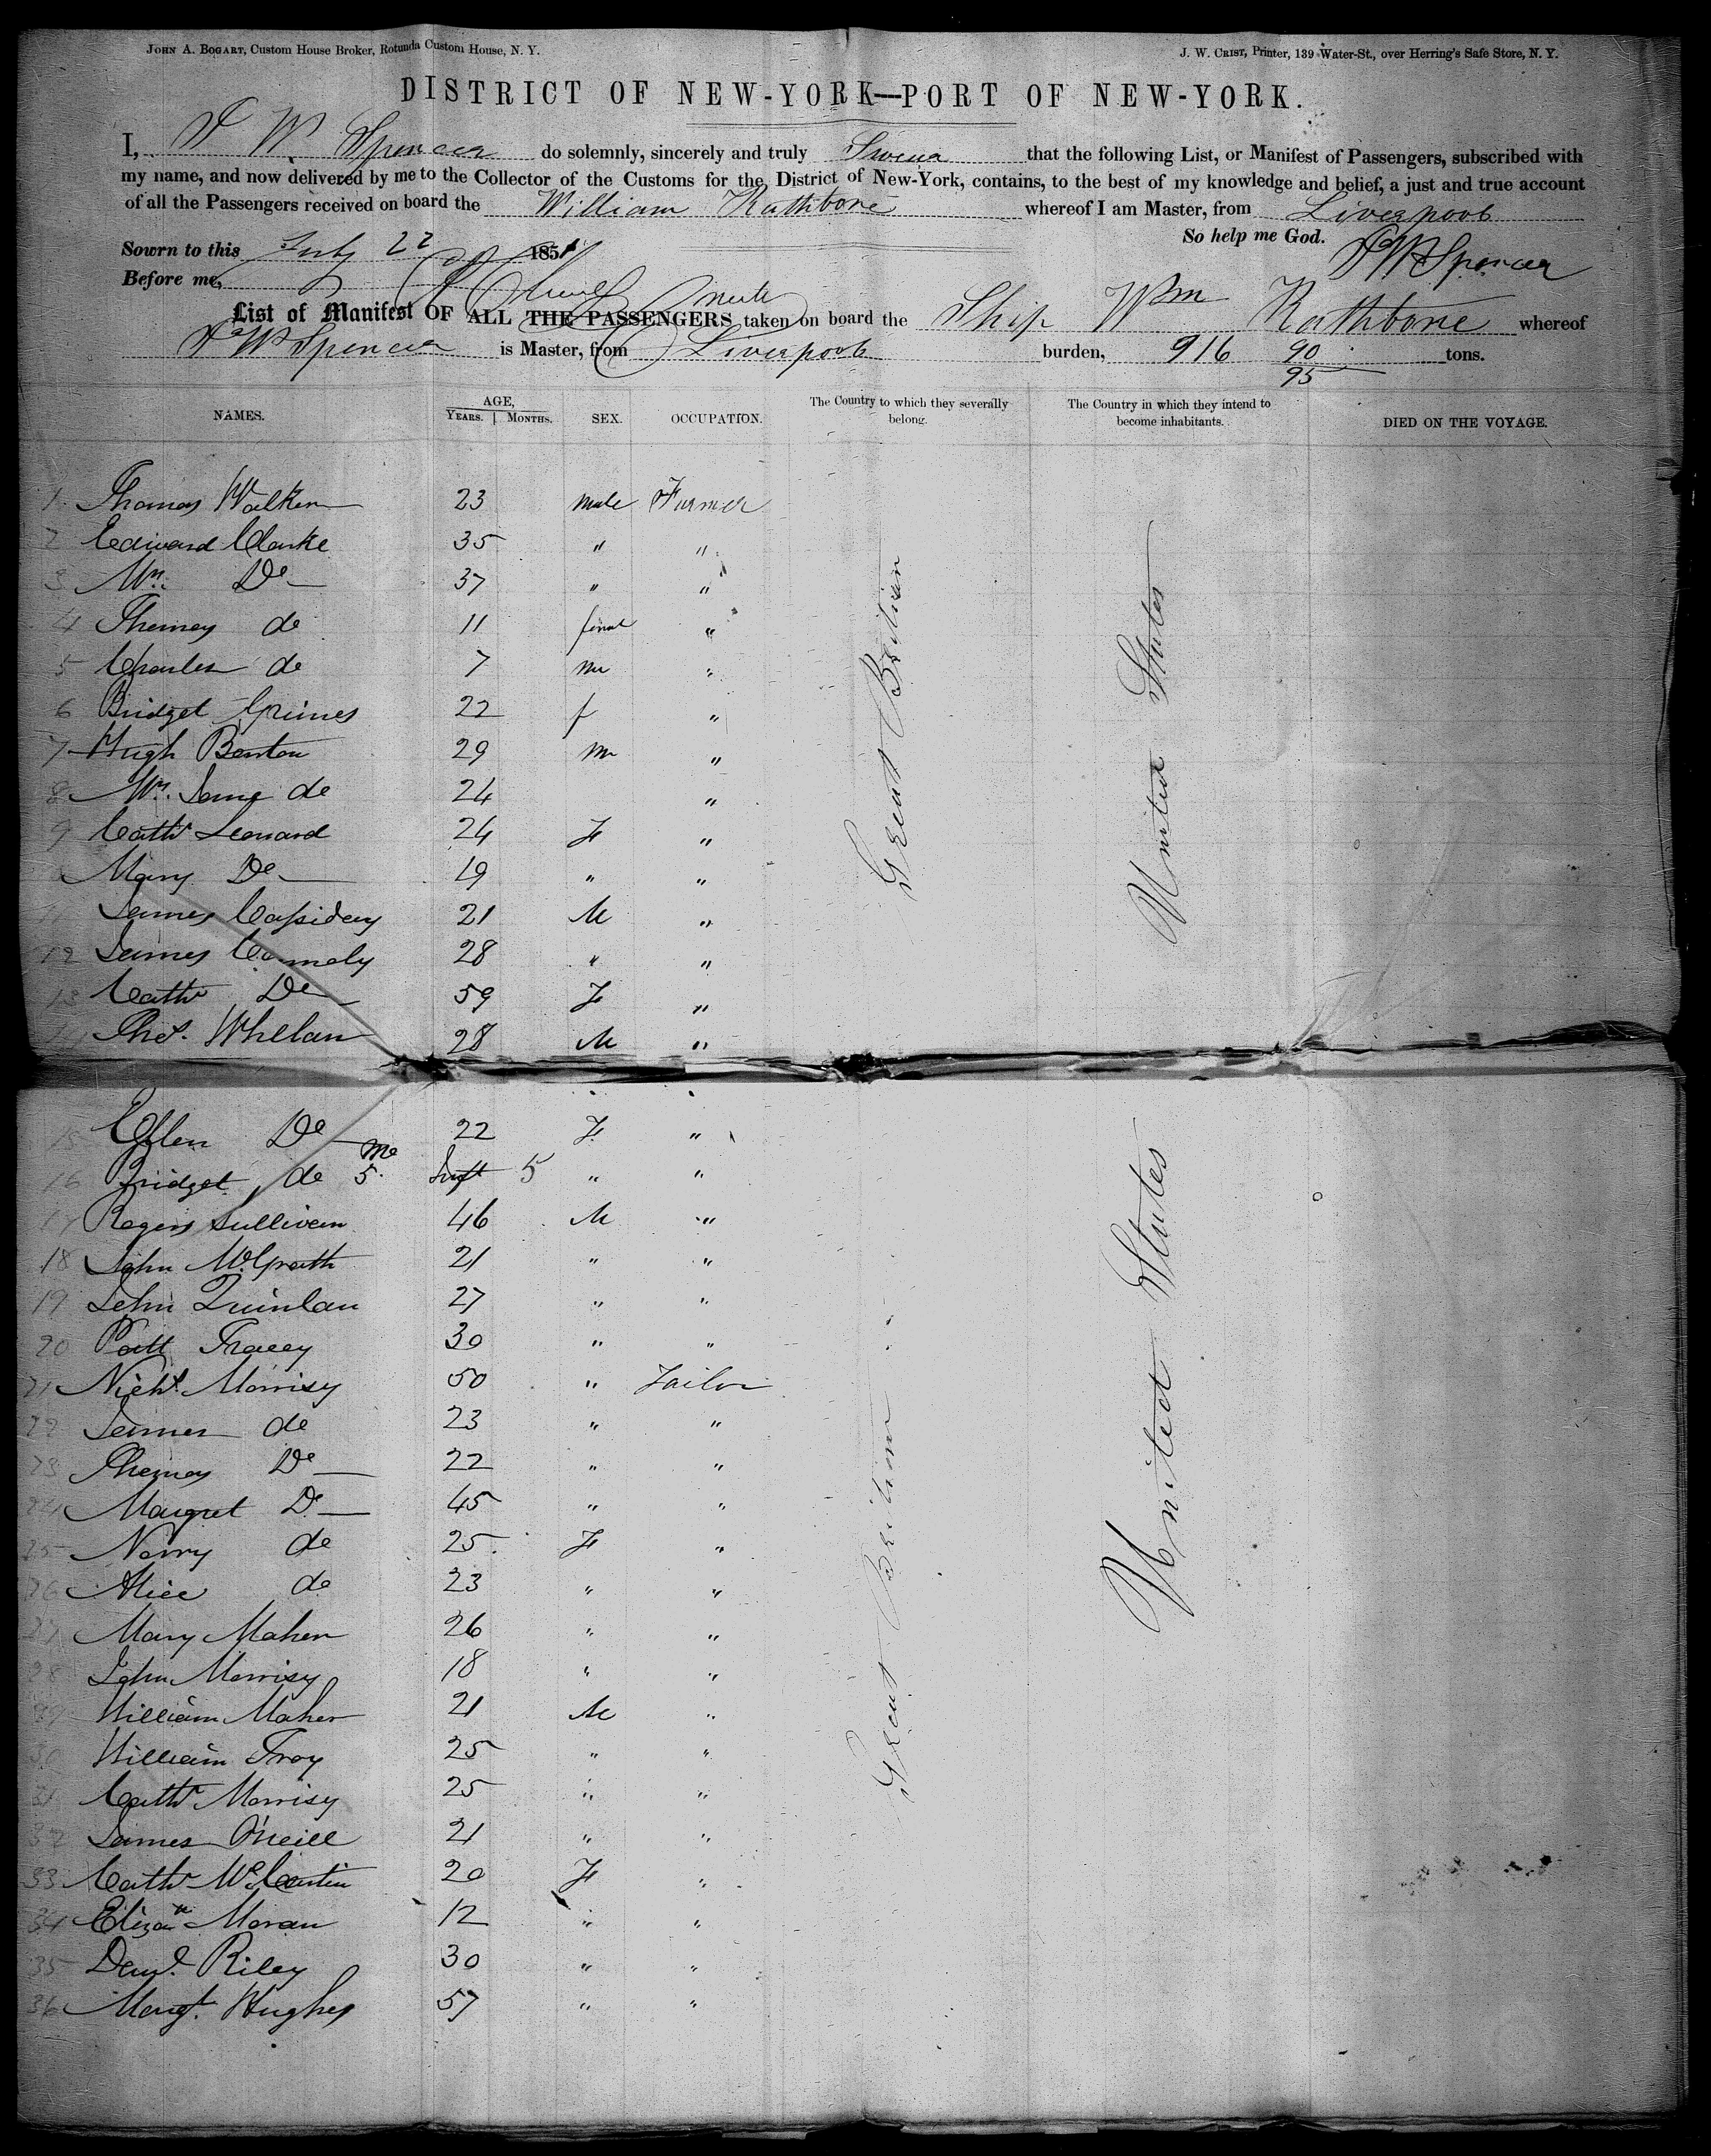 JOHN A. BOGART, Custom House Broker, Rotunda Custom House, N. Y.
J. W. CRIST, Printer, 139 Water-St., over Herring's Safe Store, N. Y.
DISTRICT OF NEW-YORK—PORT OF NEW-YORK.
I, W Spencer do solemnly, sincerely and truly Swear that the following List, or Manifest of Passengers, subscribed with
my name, and now delivered by me to the Collector of the Customs for the District of New-York, contains, to the best of my knowledge and belief, a just and true account
of all the Passengers received on board the William Rathbone whereof I am Master, from Liverpool
So help me God.
Sowrn to this July 22 1851
W Spencer
Before me,
List of Manifest OF ALL THE PASSENGERS taken on board the Ship Wm Rathbone whereof
W Spencer is Master, from Liverpool burden, 916 90/95 tons.
NAMES. AGE, YEARS. | MONTHS. SEX. OCCUPATION. The Country to which they severally belong. The Country in which they intend to become inhabitants. DIED ON THE VOYAGE.
1 Thomas Walker 23 male Farmer
2 Edward Clarke 35 " "
3 Mrs. Do 37 " "
4 Thomas do 11 femal "
5 Charles do 7 m "
6 Bridget Grimes 22 f "
7 Hugh Benton 29 m "
8 Mrs. Jane do 24 "
9 Cathe Leonard 24 F "
Mary Do 19 " "
11 James Cassidy 21 M "
12 James Connely 28 " "
13 Cathe Do 59 F "
14 Thos. Whelan 28 M "
Great Britian
United States
15 Ellen Do 22 F "
16 Bridget do 5 mo Inft 5 " "
17 Rogers Sullivan 46 M "
18 John McGrath 21 " "
19 John Quinlan 27 " "
20 Patt Tracey 30 " "
21 Nichs. Morrisy 50 " Tailor
22 James do 23 " "
23 Thomas Do 22 " "
24 Margret Do 45 " "
25 Norry do 25 F "
26 Alice do 23 " "
27 Mary Maher 26 " "
28 John Morrisy 18 " "
29 William Maher 21 M "
30 William Troy 25 " "
31 Cathe Morrisy 25 " "
32 James O'Neill 21 " "
33 Cathe McCartin 20 F "
34 Elizath Moran 12 " "
35 Danl. Riley 30 " "
36 Margt. Hughes 57 " "
Great Britian
United States